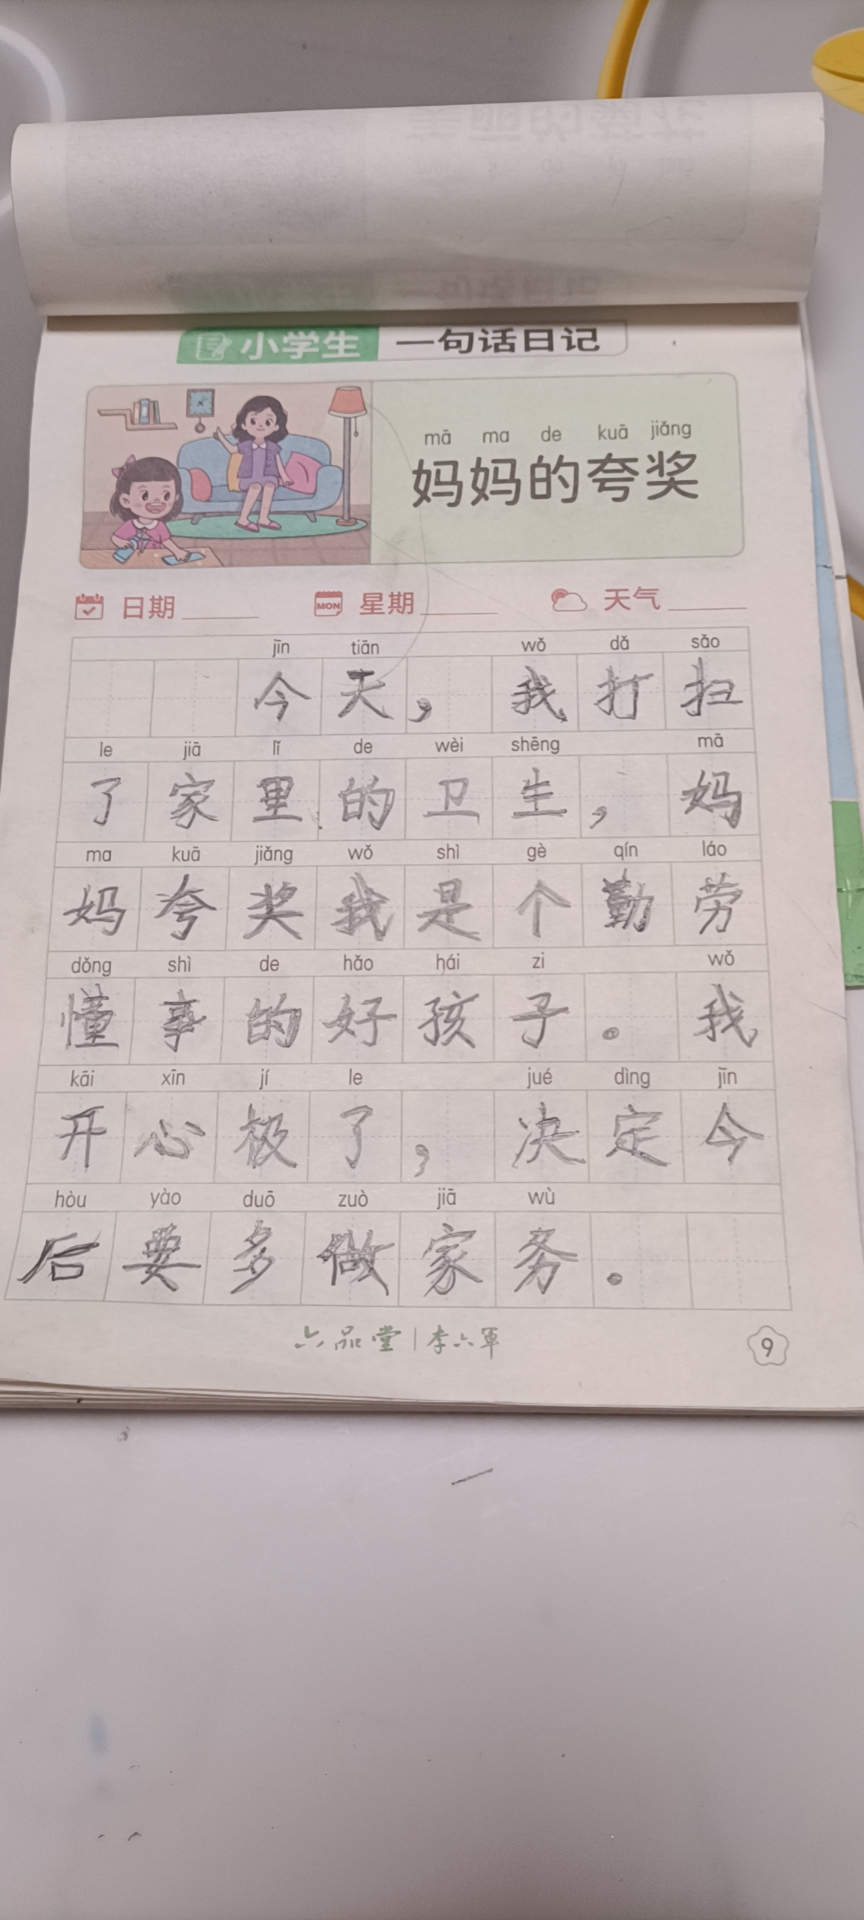 小学生 一句话日记
mā ma de kuā jiǎng
妈妈的夸奖
日期 MON 星期 天气
jīn tiān wǒ dǎ sǎo
今天，我打扫
le jiā lǐ de wèi shēng mā
了家里的卫生，妈
ma kuā jiǎng wǒ shì gè qín láo
妈夸奖我是个勤劳
dǒng shì de hǎo hái zi wǒ
懂事的好孩子。我
kāi xīn jí le jué dìng jīn
开心极了，决定今
hòu yào duō zuò jiā wù
后要多做家务。
六品堂|李六军
9